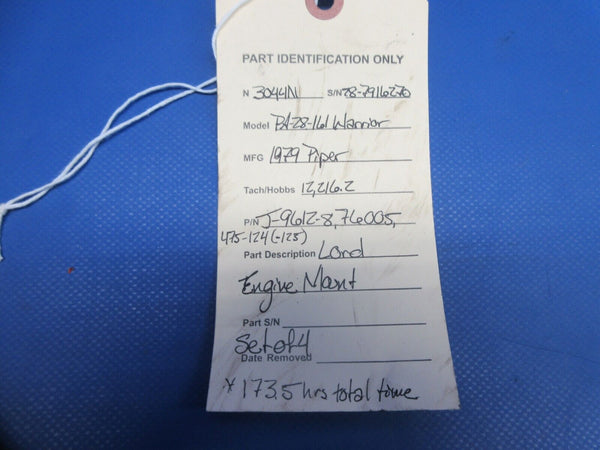 PART IDENTIFICATION ONLY
N 3044N S/N 28-7916270
Model PA-28-161 Warrior
MFG 1979 Piper
Tach/Hobbs 12,216.2
P/N J-9612-8, 76005,
475-124 (-125)
Part Description Lord
Engine Mount
Part S/N
Set of 4
Date Removed
* 173.5 hrs total time